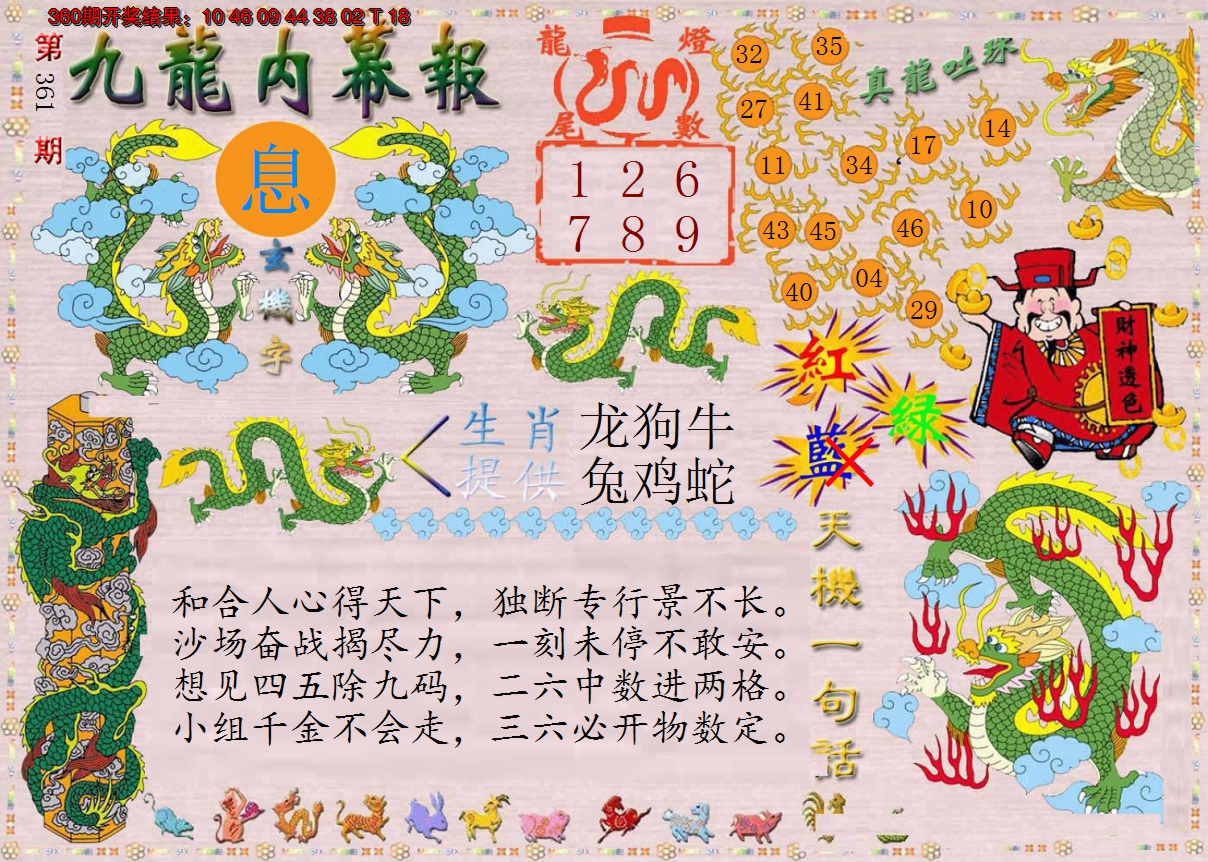 360期开奖结果：10 46 09 44 38 02 T 18
第361期
九龍内幕報
息
玄機字
龍燈尾數
1 2 6
7 8 9
真龍吐珠
32
35
27
41
17
14
11
34
10
43
45
46
04
40
29
財神透色
紅
綠
藍
生肖
提供
龙狗牛
兔鸡蛇
天機一句話
和合人心得天下，独断专行景不长。
沙场奋战揭尽力，一刻未停不敢安。
想见四五除九码，二六中数进两格。
小组千金不会走，三六必开物数定。